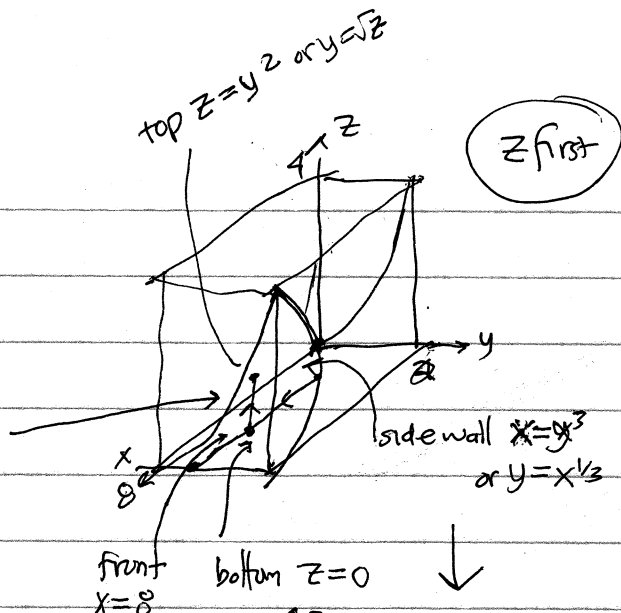 top z=y² or y=√z
z first
4
z
y
2
side wall x=y³
or y=x^1/3
x
8
front
x=8
bottom z=0